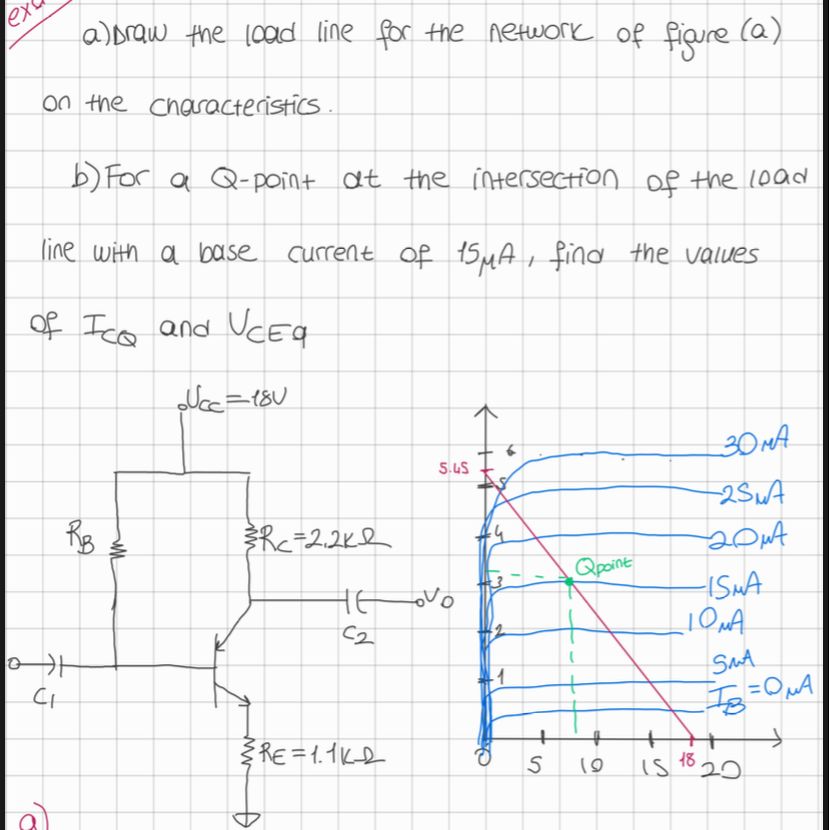 exa
a) Draw the load line for the network of figure (a)
on the characteristics.
b) For a Q-point at the intersection of the load
line with a base current of 15μA, find the values
of ICQ and VCEq
VCC=18V
RB
RC=2.2kΩ
C2
VO
C1
RE=1.1kΩ
6
5.45
5
4
3
2
1
0
5
10
15
18
20
Qpoint
30μA
25μA
20μA
15μA
10μA
5μA
IB=0μA
a)